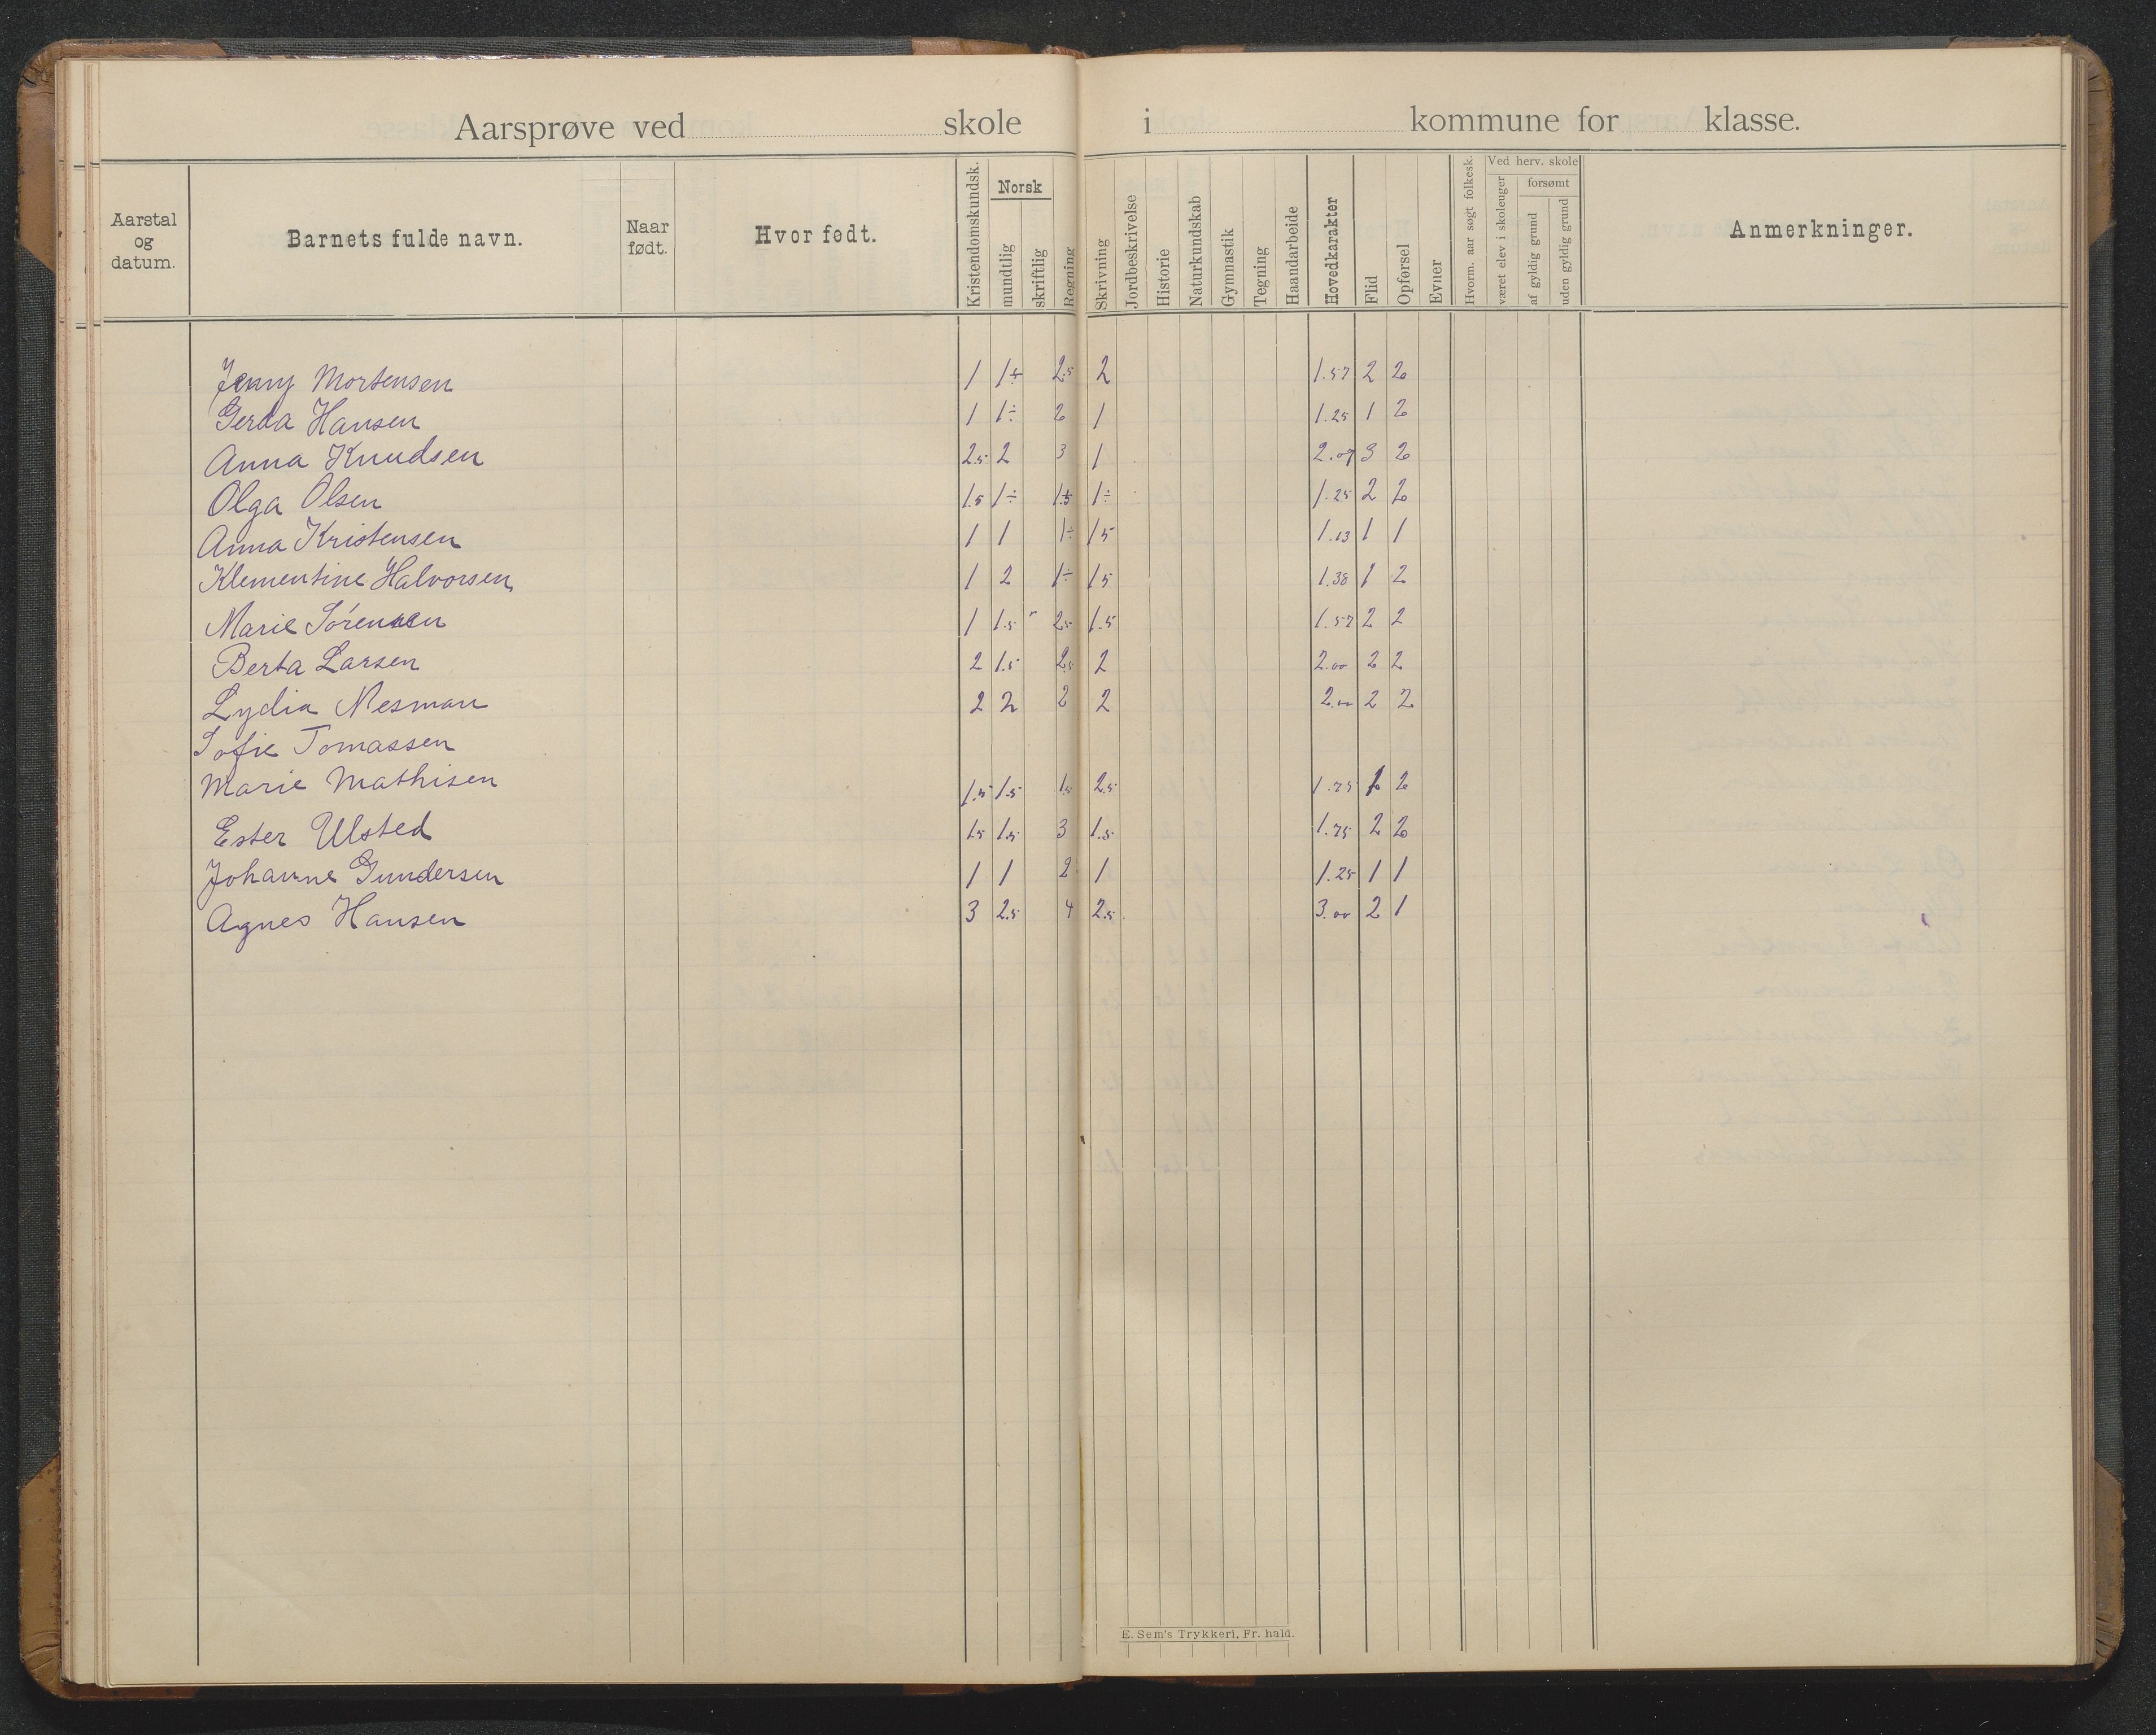 Aarsprøve ved skole i kommune for klasse.
Aarstal og datum. Barnets fulde navn. Naar født. Hvor født. Kristendomskundsk. Norsk mundtlig skriftlig Regning Skrivning Jordbeskrivelse Historie Naturkundskab Gymnastik Tegning Haandarbeide Hovedkarakter Flid Opførsel Evner Hvorm. aar søgt folkesk. Ved herv. skole været elev i skoleuger forsømt af gyldig grund uden gyldig grund Anmerkninger.
Jenny Mortensen 1 1÷ 2.5 2 1.57 2 2
Gerda Hansen 1 1÷ 2 1 1.25 1 2
Anna Knudsen 2.5 2 3 1 2.07 3 2
Olga Olsen 1.5 1÷ 1.5 1÷ 1.25 2 2
Anna Kristensen 1 1 1÷ 1.5 1.13 1 1
Klementine Halvorsen 1 2 1÷ 1.5 1.38 1 2
Marie Sørensen 1 1.5 2.5 1.5 1.57 2 2
Berta Larsen 2 1.5 2.5 2 2.00 2 2
Lydia Nesman 2 2 2 2 2.00 2 2
Sofie Tomassen
Marie Mathisen 1.5 1.5 1.5 2.5 1.75 2
Ester Ulsted 1.5 1.5 3 1.5 1.75 2 2
Johanne Gundersen 1 1 2 1 1.25 1 1
Agnes Hansen 3 2.5 4 2.5 3.00 2 1
E. Sem's Trykkeri, Fr. hald.